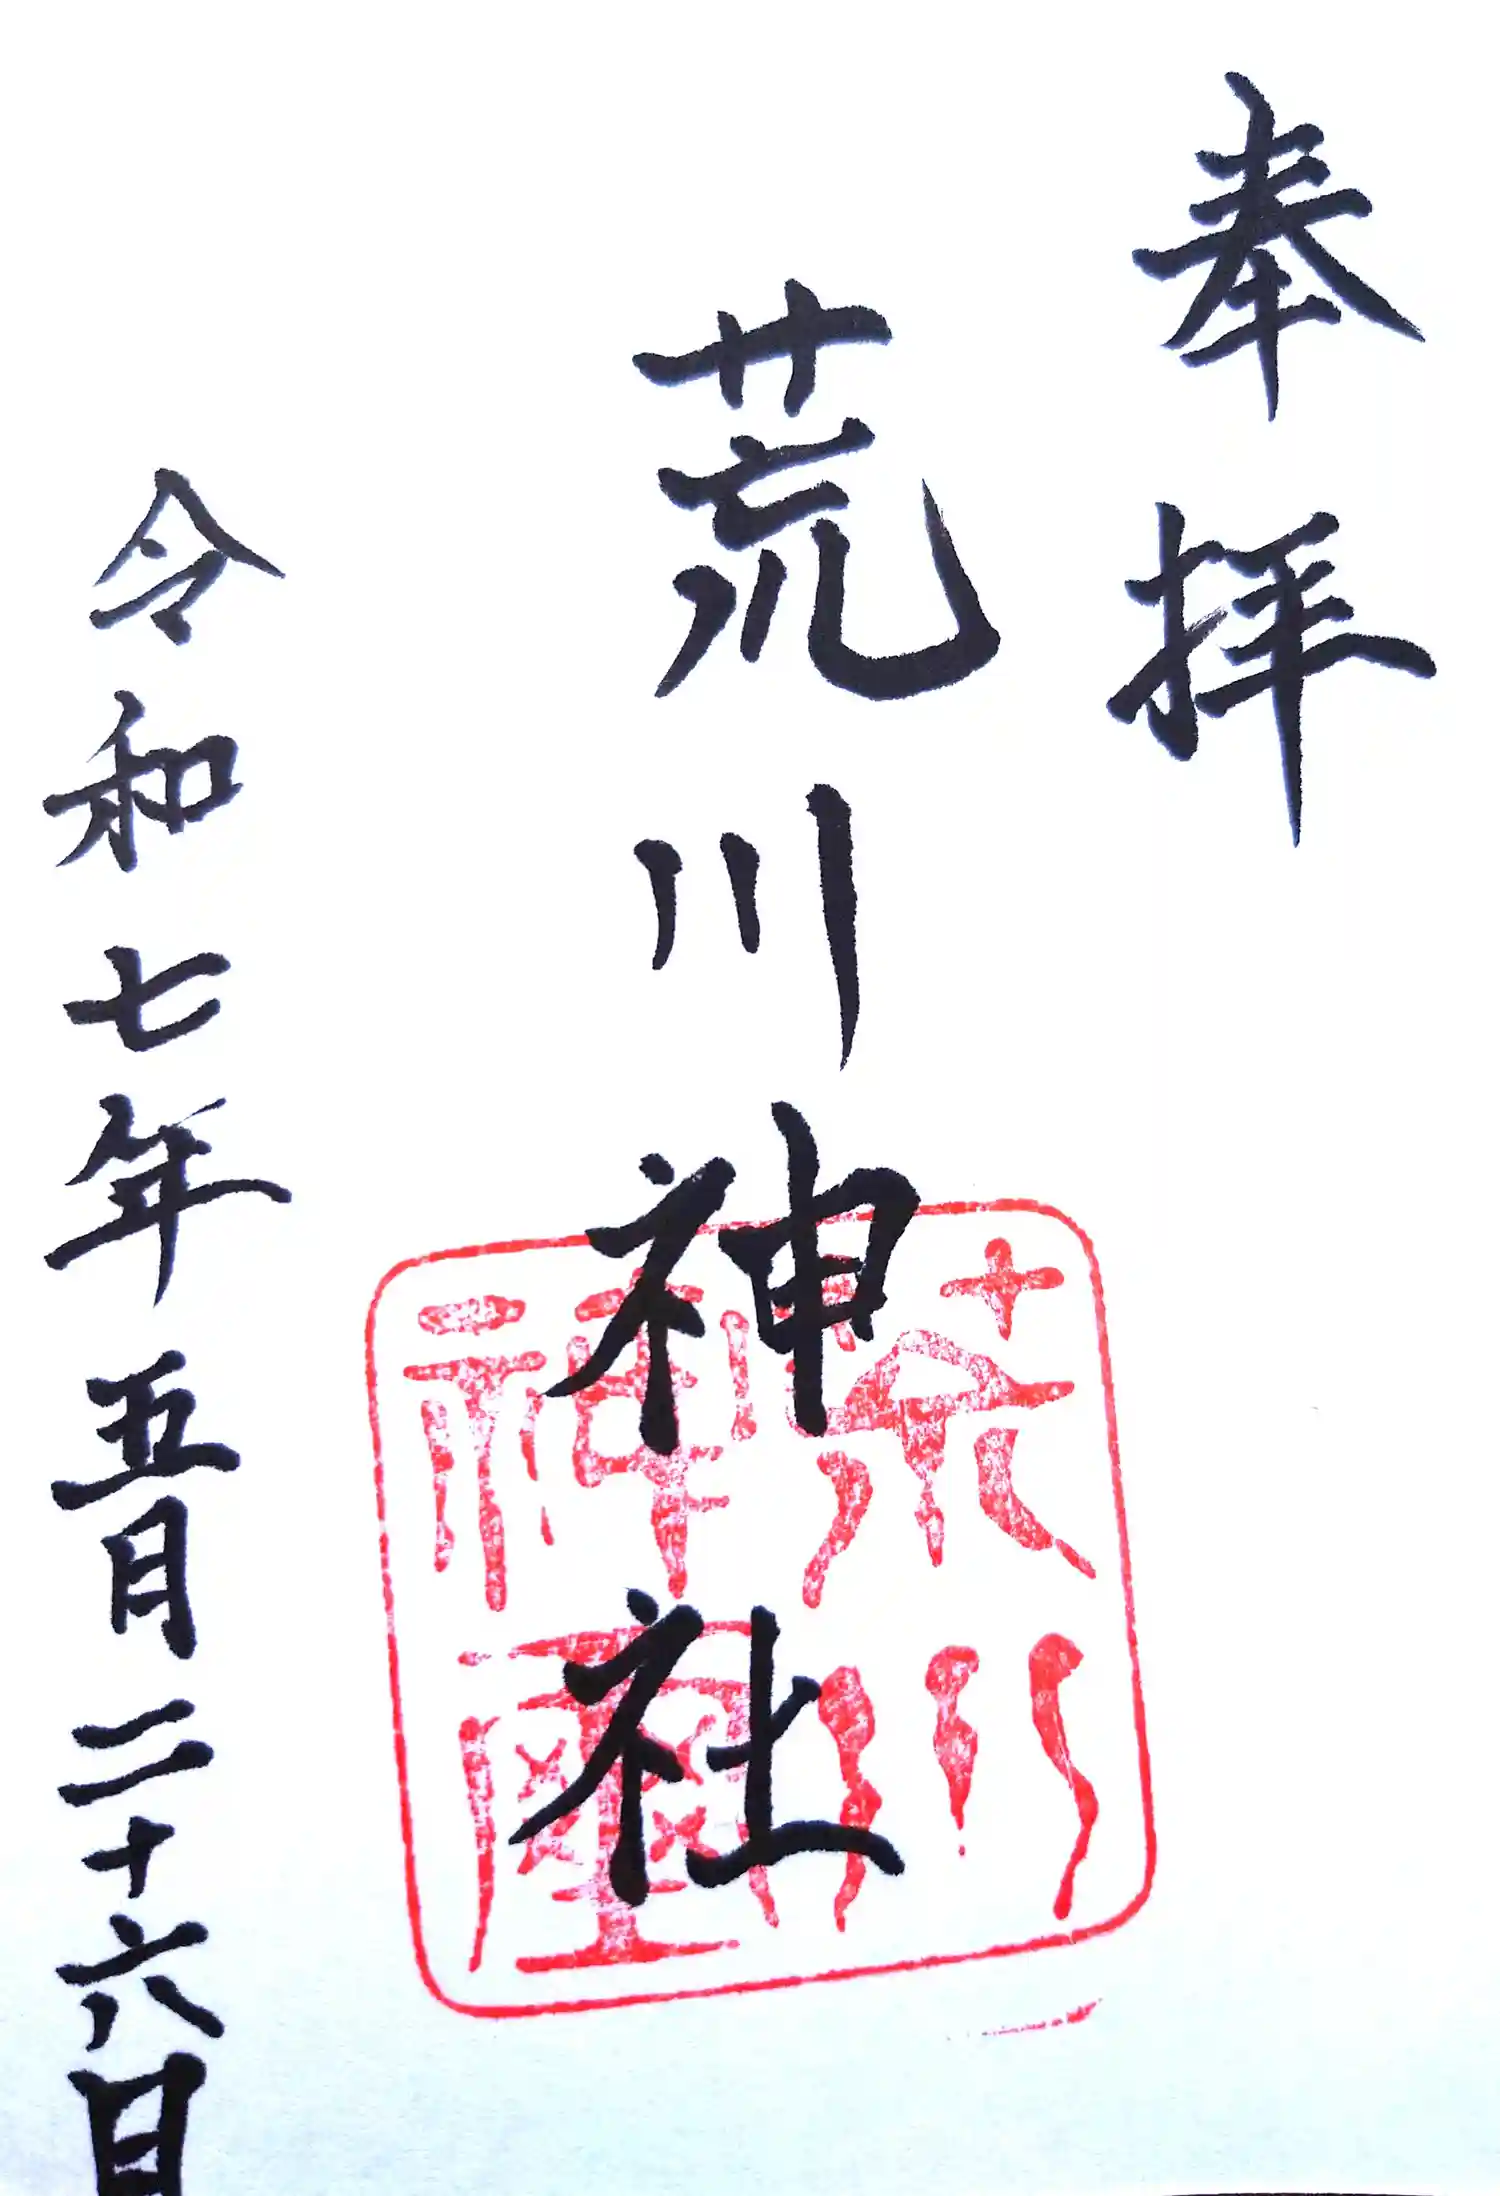 奉拝
荒川神社
令和七年五月二十六日
荒川
神璽